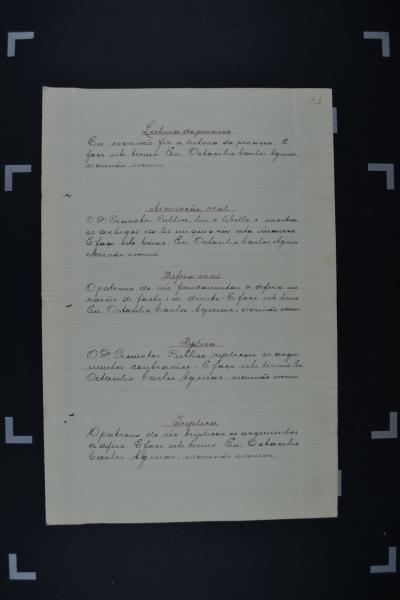 Leitura do processo
Eu escrivão fiz a leitura do processo. E
faço este termo. Eu, Octacilio Carlos Aguiar,
escrivão escrevi
Accusação oral
O Dr Promotor Publico, leu o libello e mostrou
os artigos da lei em que o réo está incurso.
E faço este termo. Eu, Octacilio Carlos Aguiar
escrivão escrevi
Defesa oral
O patrono do réo fundamentou a defesa em
razões de facto e de direito. E faço este termo
Eu, Octacilio Carlos Aguiar, escrivão escrevi
Replica
O Dr Promotor Publico replicou os argu
mentos contrarios. E faço este termo Eu
Octacilio Carlos Aguiar, escrivão escrevi.
Treplica
O patrono do réo treplicou os argumentos
de defesa. E faço este termo. Eu, Octacilio
Carlos Aguiar, escrivão escrevi